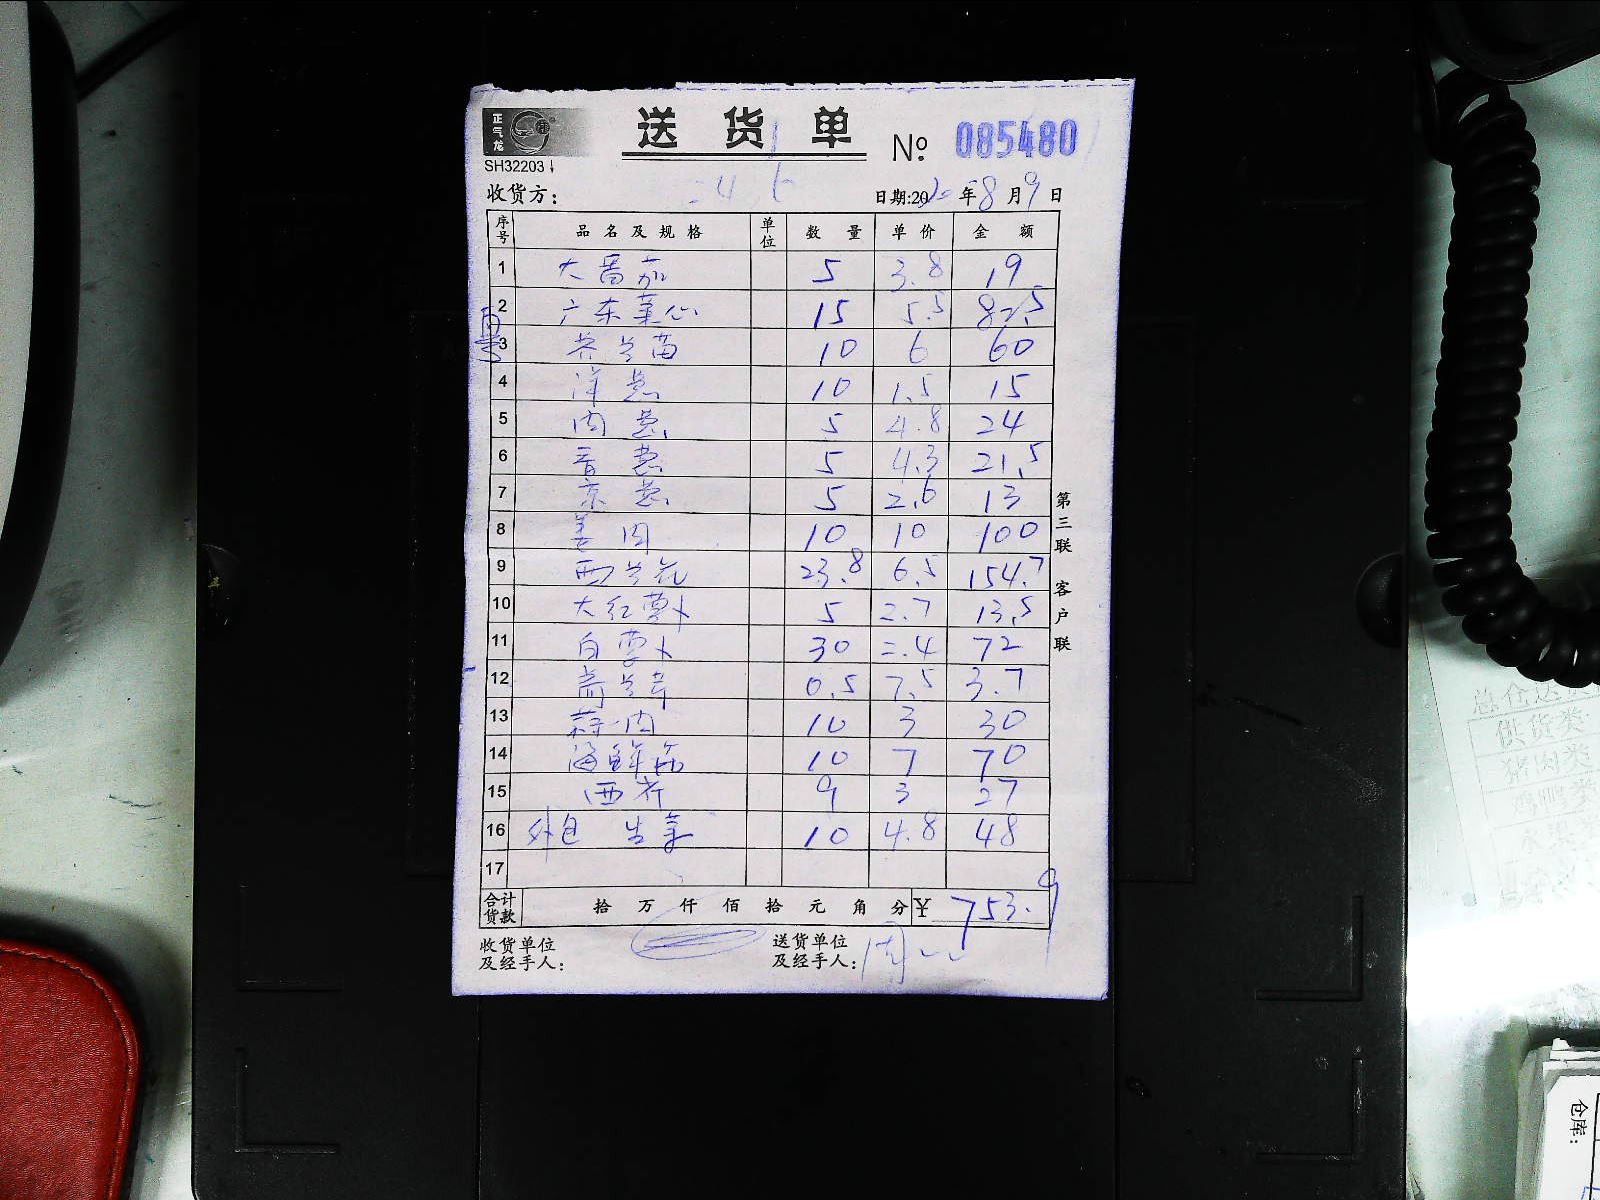 正气龙
送货单 № 085480
SH32203
收货方： 日期:20 年8月9日
序号 品名及规格 单位 数量 单价 金额
1 大番茄 5 3.8 19
2 广东菜心 15 5.5 82.5
3 芥兰苗 10 6 60
4 洋葱 10 1.5 15
5 肉葱 5 4.8 24
6 香葱 5 4.3 21.5
7 京葱 5 2.6 13
8 姜肉 10 10 100
9 西兰花 23.8 6.5 154.7
10 大红萝卜 5 2.7 13.5
11 白萝卜 30 2.4 72
12 7.5 3.7
0.5
13 蒜肉 10 3 30
14 海鲜菇 10 7 70
15 西芹 9 3 27
16 外包 生菜 10 4.8 48
17
合计货款 拾 万 仟 佰 拾 元 角 分 ¥ 753.9
收货单位及经手人：
送货单位及经手人：
第三联 客户联
供货类
猪肉类
仓库：